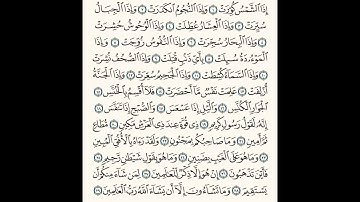 إِذَا الشَّمْسُ كُوِّرَتْ ١ وَإِذَا النُّجُومُ انكَدَرَتْ ٢ وَإِذَا الْجِبَالُ
سُيِّرَتْ ٣ وَإِذَا الْعِشَارُ عُطِّلَتْ ٤ وَإِذَا الْوُحُوشُ حُشِرَتْ
٥ وَإِذَا الْبِحَارُ سُجِّرَتْ ٦ وَإِذَا النُّفُوسُ زُوِّجَتْ ٧ وَإِذَا
الْمَوْءُودَةُ سُئِلَتْ ٨ بِأَيِّ ذَنبٍ قُتِلَتْ ٩ وَإِذَا الصُّحُفُ نُشِرَتْ
١٠ وَإِذَا السَّمَاءُ كُشِطَتْ ١١ وَإِذَا الْجَحِيمُ سُعِّرَتْ ١٢ وَإِذَا الْجَنَّةُ
أُزْلِفَتْ ١٣ عَلِمَتْ نَفْسٌ مَّا أَحْضَرَتْ ١٤ فَلَا أُقْسِمُ بِالْخُنَّسِ ١٥
الْجَوَارِ الْكُنَّسِ ١٦ وَاللَّيْلِ إِذَا عَسْعَسَ ١٧ وَالصُّبْحِ إِذَا تَنَفَّسَ ١٨
إِنَّهُ لَقَوْلُ رَسُولٍ كَرِيمٍ ١٩ ذِي قُوَّةٍ عِندَ ذِي الْعَرْشِ مَكِينٍ ٢٠ مُّطَاعٍ
ثَمَّ أَمِينٍ ٢١ وَمَا صَاحِبُكُم بِمَجْنُونٍ ٢٢ وَلَقَدْ رَآهُ بِالْأُفُقِ الْمُبِينِ
٢٣ وَمَا هُوَ عَلَى الْغَيْبِ بِضَنِينٍ ٢٤ وَمَا هُوَ بِقَوْلِ شَيْطَانٍ رَّجِيمٍ ٢٥
فَأَيْنَ تَذْهَبُونَ ٢٦ إِنْ هُوَ إِلَّا ذِكْرٌ لِّلْعَالَمِينَ ٢٧ لِمَن شَاءَ مِنكُمْ أَن
يَسْتَقِيمَ ٢٨ وَمَا تَشَاءُونَ إِلَّا أَن يَشَاءَ اللَّهُ رَبُّ الْعَالَمِينَ ٢٩